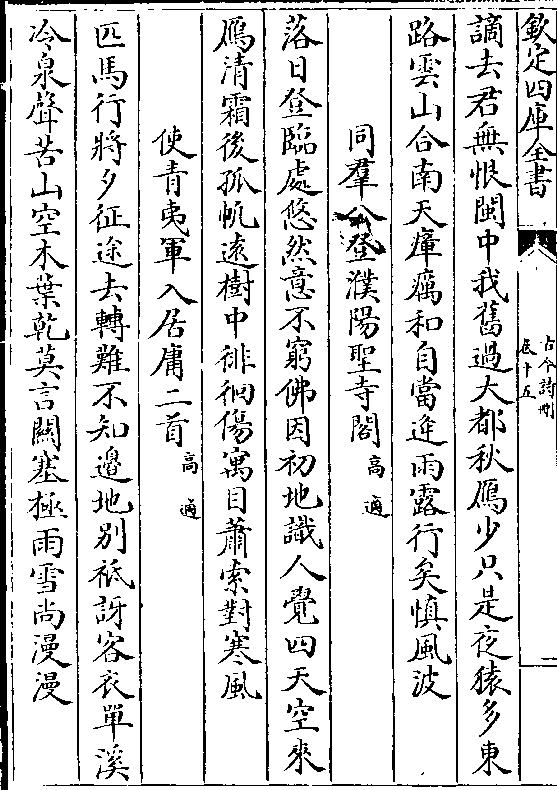 欽定四庫全書
古今詩刪
卷十五
二
謫去君無恨閩中我舊過大都秋鴈少只是夜猿多東
路雲山合南天瘴癘和自當逢雨露行矣慎風波
同羣公登濮陽聖寺閣高適
落日登臨處悠然意不窮佛因初地識人覺四天空來
鴈清霜後孤帆遠樹中徘徊傷寓目蕭索對寒風
使青夷軍入居庸二首高適
匹馬行將夕征途去轉難不知邊地別祇訝客衣單溪
冷泉聲苦山空木葉乾莫言關塞極雨雪尚漫漫